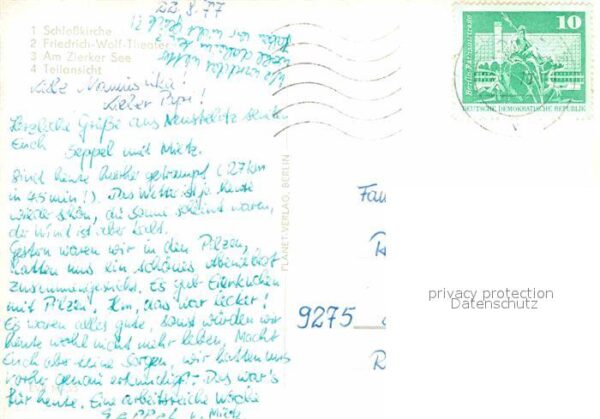 22.8.77
1 Schloßkirche
2 Friedrich-Wolf-Theater
3 Am Zierker See
4 Teilansicht
Liebe Mamuschka!
Lieber Papi!
Herzliche Grüße aus Neustrelitz senden
Euch Seppel und Mietz.
Sind heute hierher getrampt (27 km
in 45 min!). Das Wetter ist ja heute
wieder schön, die Sonne scheint warm,
der Wind ist aber kalt.
Gestern waren wir in den Pilzen,
hatten uns ein schönes Abendbrot
zusammengesucht. Es gab Eierkuchen
mit Pilzen. Hm, das war lecker!
Es waren alles gute, sonst würden wir
heute wohl nicht mehr leben. Macht
Euch aber keine Sorgen, wir hatten uns
vorher genau erkundigt. Das war's
für heute. Eine arbeitsreiche Woche
Seppel u. Mietz
PLANET-VERLAG, BERLIN
10
Berlin, Rathausstraße
DEUTSCHE DEMOKRATISCHE REPUBLIK
Fam
9275
R
privacy protection
Datenschutz